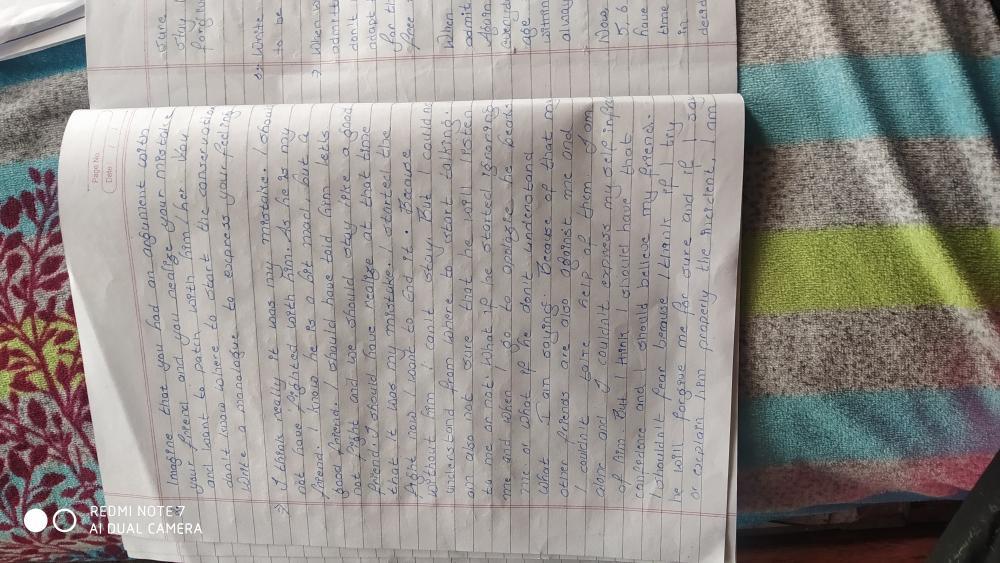 Page No.
Date
Imagine that you had an argument with
your friend and you realize your mistake
and want to path with him/her. You
don't know where to start the conservation
Write a monologue to express your feeling
I think really it was my mistake. I should
not have fighted with him. As he is my
friend. I know he is a bit mad but a
good friend. I should have told him lets
not fight and we should stay like a good
friend. I should have realize at that time
that it was my mistake. I started the
fight now I want to End it. Because
without him I can't stay. But I could
understand from where to start talking.
am also not sure that he will listen
to me or not. What if he started ignoring
me and when I go to aplogize he beads.
me or what if he don't understand
What I am saying. Because of that
other friends are also against me and
I couldn't take help of them. I am
alone and I couldn't express my self infro
of him. But I think I should have that
confidence and I should believe my friend.
I shouldn't fear because I think if I try
he will forgive me for sure and if I
or explain him properly the incident, I am
sure
sty
forgive
Write
to be
When
admit
don't
adapt
for th
free
When
admit
Again
everyd
age
witho
alway
Now
5, 6
have
time
in
decid
REDMI NOTE 7
AI DUAL CAMERA